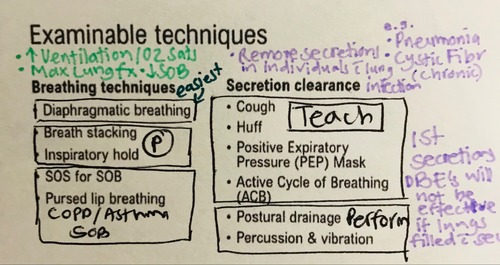 Examinable techniques
• ↑ Ventilation/O2 Sats
• Max Lung fx • ↓ SOB
Breathing techniques
easiest
Diaphragmatic breathing
Breath stacking
Inspiratory hold
P
SOS for SOB
Pursed lip breathing
COPD/Asthma
SOB
• Remove secretions
in individuals c̄ lung
infection
e.g.
• Pneumonia
• Cystic Fibr
(chronic)
Secretion clearance
• Cough
• Huff
Teach
• Positive Expiratory
Pressure (PEP) Mask
• Active Cycle of Breathing
(ACB)
• Postural drainage
Perform
• Percussion & vibration
1st
secretions
DBE's will
not be
effective
if lungs
filled c̄ se